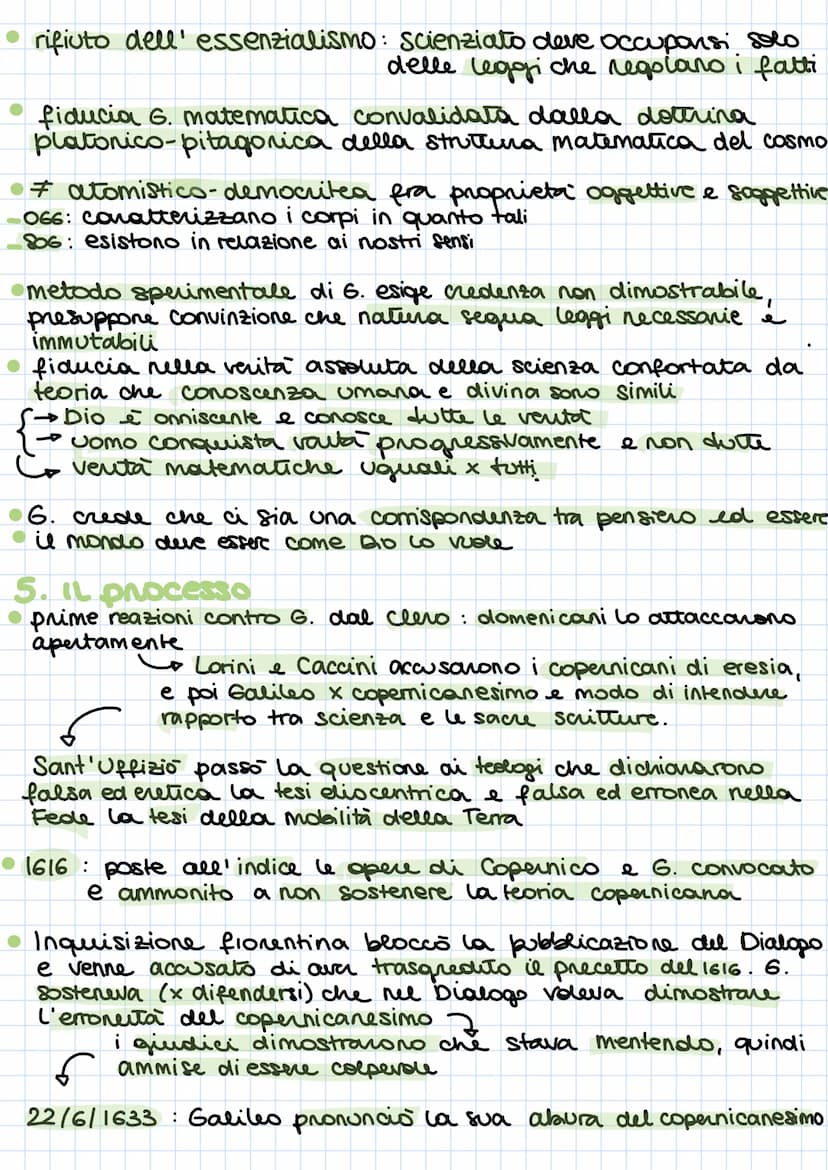 • rifiuto dell'essenzialismo: scienziato deve occuparsi solo
delle leggi che regolano i fatti
• fiducia G. matematica convalidata dalla dottrina
platonico-pitagorica della struttura matematica del cosmo
• ≠ atomistico-democritea fra proprietà oggettive e soggettive
-OGG: caratterizzano i corpi in quanto tali
-SOG: esistono in relazione ai nostri sensi
• metodo sperimentale di G. esige credenza non dimostrabile,
presuppone convinzione che natura segua leggi necessarie e
immutabili
• fiducia nella verità assoluta della scienza confortata da
teoria che conoscenza umana e divina sono simili
→ Dio è onniscente e conosce tutte le verità
→ uomo conquista verità progressivamente e non tutte
→ verità matematiche uguali x tutti
• G. crede che ci sia una corrispondenza tra pensiero ed essere
• il mondo deve essere come Dio lo vuole
5. IL processo
• prime reazioni contro G. dal clero: domenicani lo attaccarono
apertamente
→ Lorini e Caccini accusarono i copernicani di eresia,
e poi Galileo x copernicanesimo e modo di intendere
rapporto tra scienza e le sacre scritture.
Sant'Uffizio passò la questione ai teologi che dichiararono
falsa ed eretica la tesi eliocentrica e falsa ed erronea nella
Fede la tesi della mobilità della Terra
• 1616: poste all'indice le opere di Copernico e G. convocato
e ammonito a non sostenere la teoria copernicana
• Inquisizione fiorentina bloccò la pubblicazione del Dialogo
e venne accusato di aver trasgredito il precetto del 1616. G.
sosteneva (x difendersi) che nel Dialogo voleva dimostrare
l'erroneità del copernicanesimo
i giudici dimostrarono che stava mentendo, quindi
ammise di essere colpevole
22/6/1633: Galileo pronunciò la sua abiura del copernicanesimo